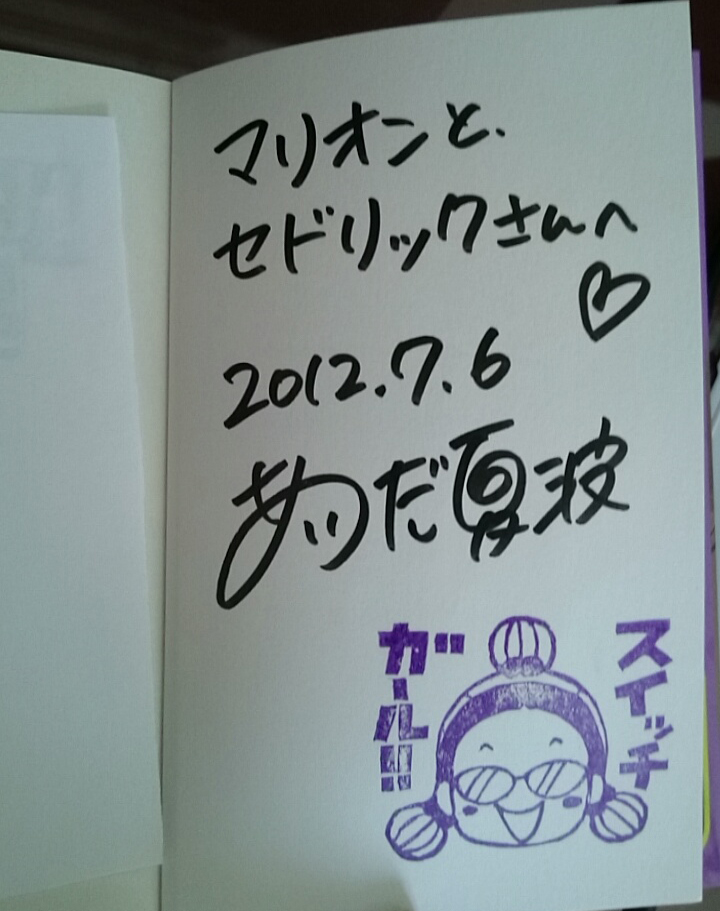 マリオンと、
セドリックさんへ
2012.7.6
あいだ夏波
スイッチ
ガール!!